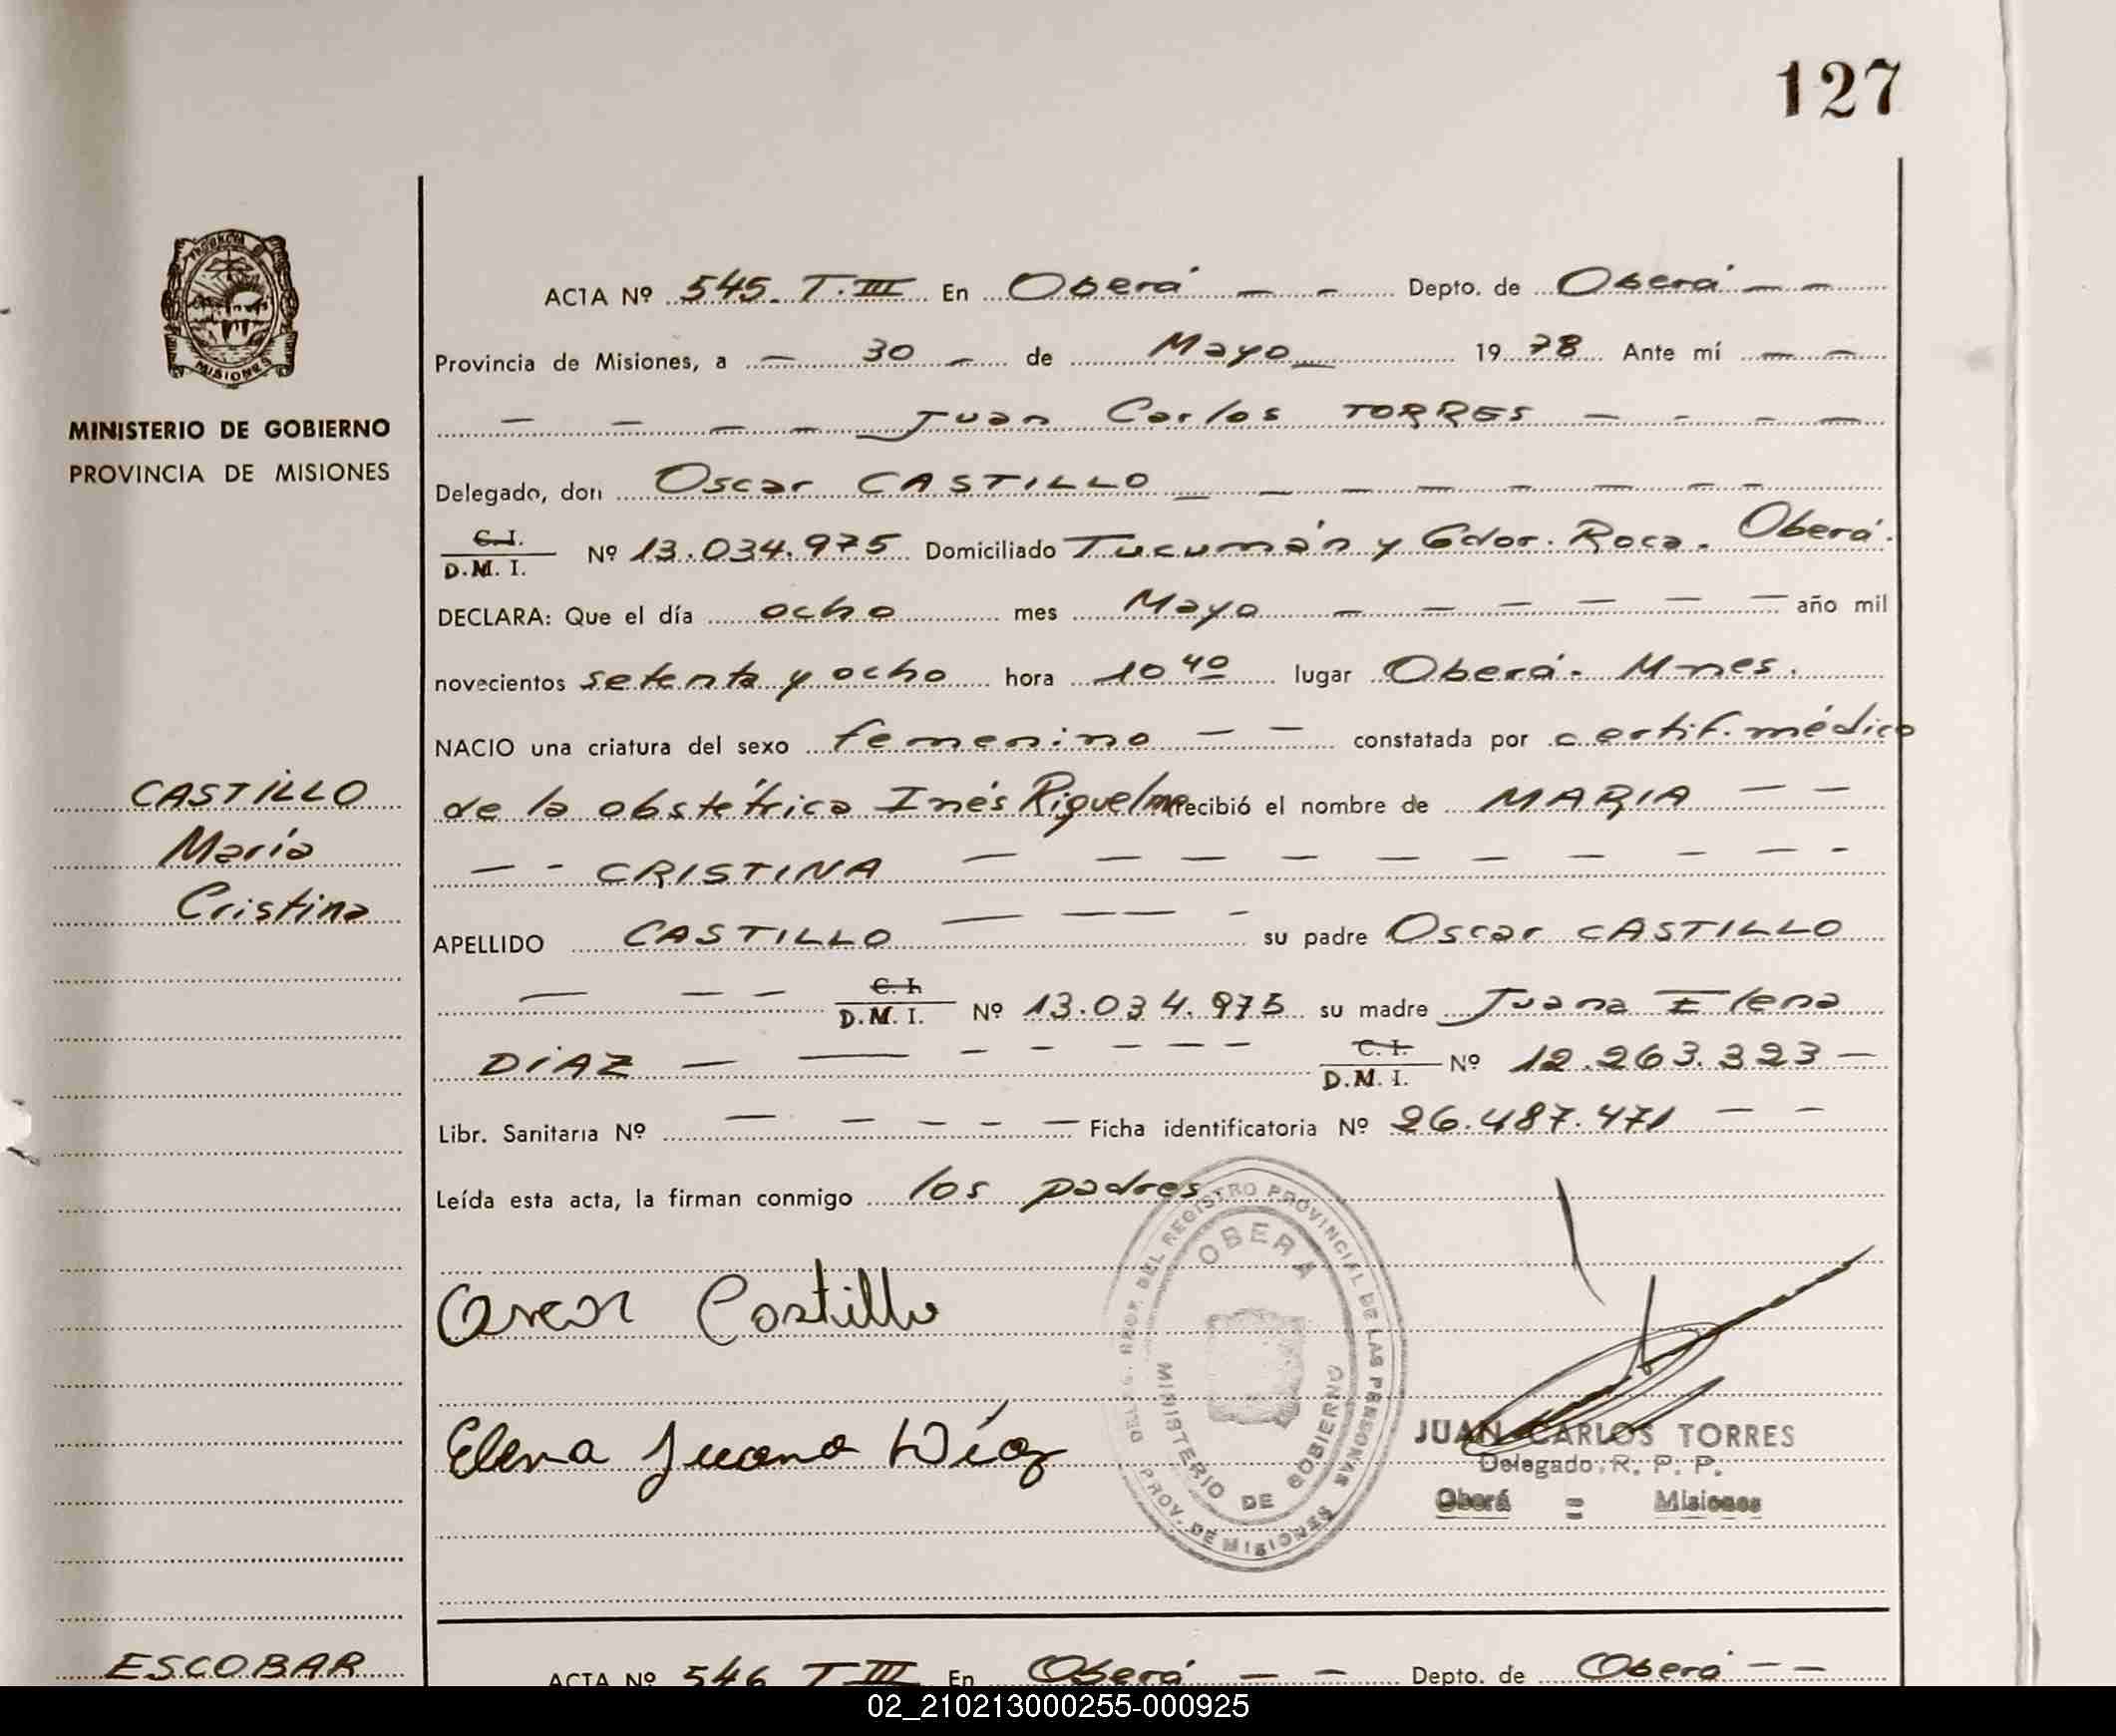 127
PROVINCIA DE
MISIONES
MINISTERIO DE GOBIERNO
PROVINCIA DE MISIONES
CASTILLO
María
Cristina
ACTA Nº 545. T. III En Oberá — — Depto. de Oberá — —
Provincia de Misiones, a — 30 — de Mayo — 1978 Ante mí — —
— — — — Juan Carlos TORRES — — — —
Delegado, don Oscar CASTILLO — — — — — — —
C.I. D.M.I. Nº 13.034.975 Domiciliado Tucumán y Gdor. Roca. Oberá.
DECLARA: Que el día ocho mes Mayo — — — — — — año mil
novecientos setenta y ocho hora 10 40 lugar Oberá. Mnes.
NACIO una criatura del sexo femenino — — constatada por certif. médico
de la obstétrica Inés Riquelme recibió el nombre de MARIA — —
— - CRISTINA — — — — — — — — -
APELLIDO CASTILLO — — — - su padre Oscar CASTILLO
— — — C.I. D.M.I. Nº 13.034.975 su madre Juana Elena
DíAZ — — - - - - - - C.I. D.M.I. Nº 12.263.323 —
Libr. Sanitaria Nº — — — — — Ficha identificatoria Nº 26.487.471 — —
Leída esta acta, la firman conmigo los padres
Oscar Castillo
Elena Juana Díaz
REGISTRO PROVINCIAL DE LAS PERSONAS
OBERA
MINISTERIO DE GOBIERNO
PROV. DE MISIONES
JUAN CARLOS TORRES
Delegado R. P. P.
Oberá = Misiones
ESCOBAR
ACTA Nº 546 T III En Oberá — — Depto. de Oberá — —
02_210213000255-000925